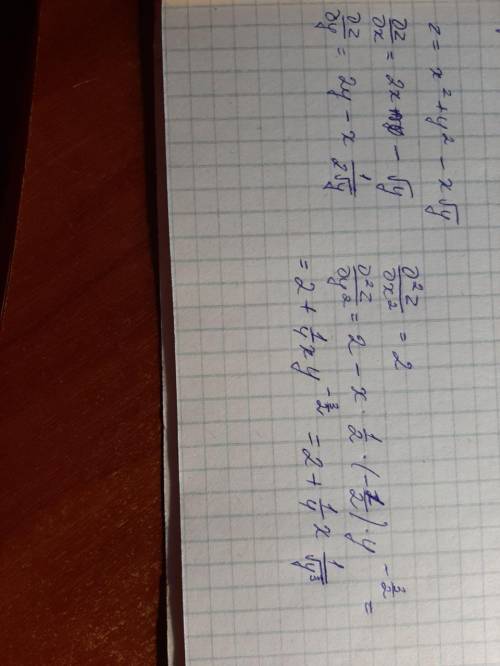 z = x² + y² - x√y
∂z/∂x = 2x - √y
∂z/∂y = 2y - x 1/(2√y)
∂²z/∂x² = 2
∂²z/∂y² = 2 - x · 1/2 · (-1/2) · y^(-3/2) =
= 2 + 1/4 x y^(-3/2) = 2 + 1/4 x 1/√y³